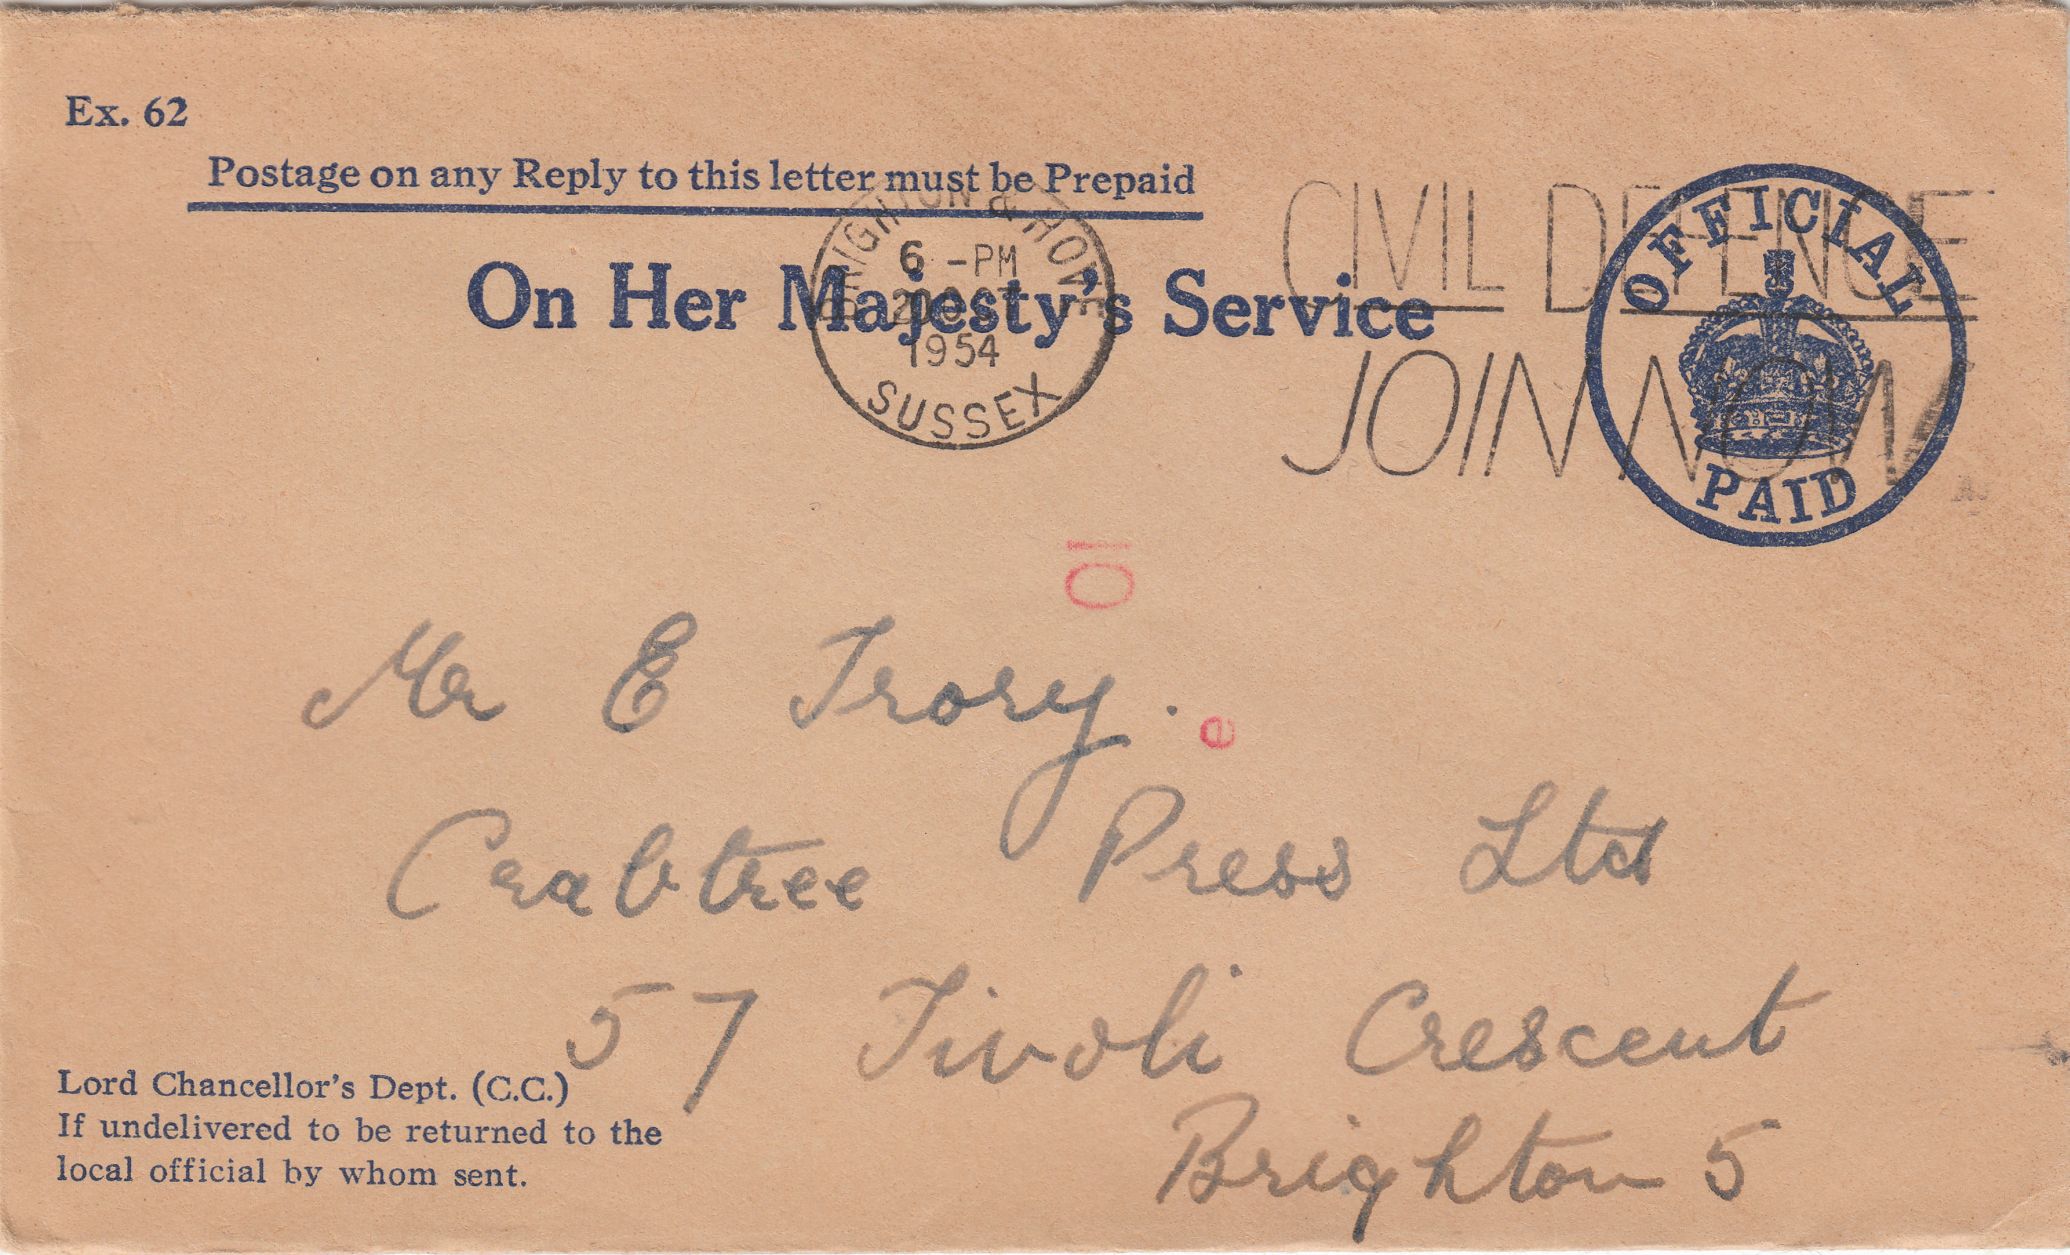 Ex. 62
Postage on any Reply to this letter must be Prepaid
On Her Majesty's Service
BRIGHTON & HOVE
6 - PM
20 OCT
1954
SUSSEX
CIVIL DEFENCE
JOIN NOW
OFFICIAL
PAID
10
Mr E Trory.
e
Crabtree Press Ltd
57 Tivoli Crescent
Brighton 5
Lord Chancellor's Dept. (C.C.)
If undelivered to be returned to the
local official by whom sent.